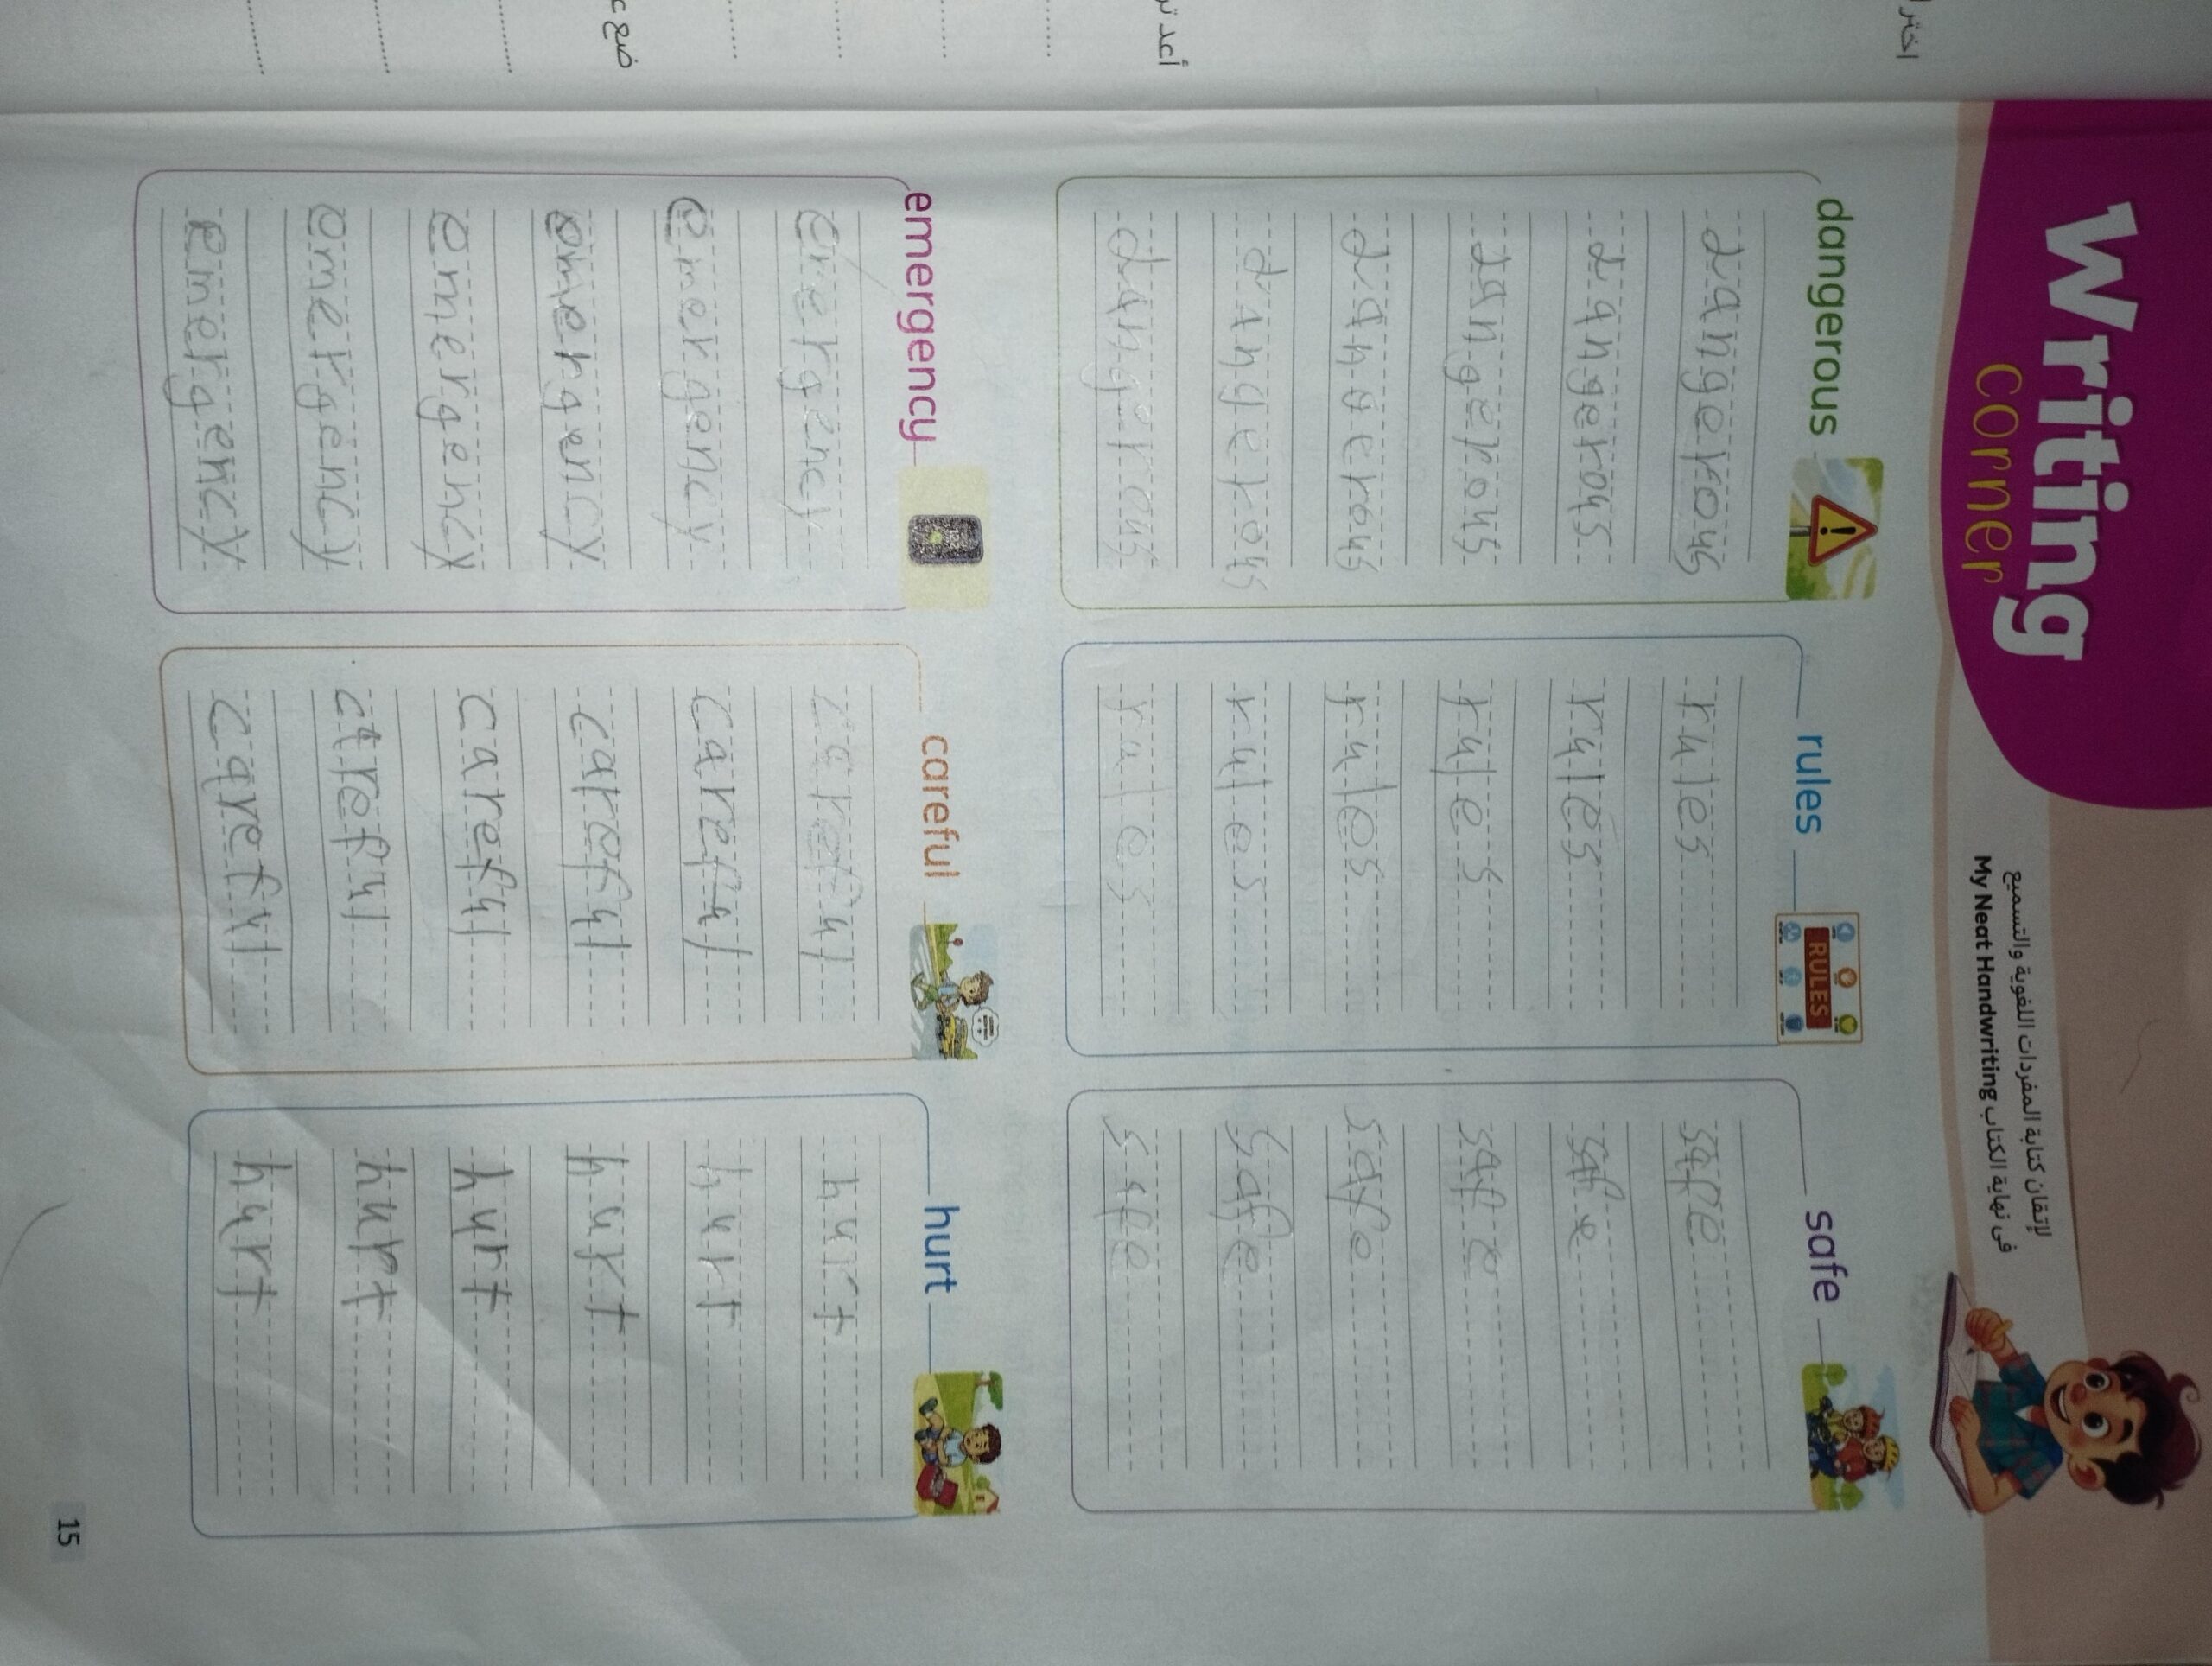 Writing
corner
لإتقان كتابة المفردات اللغوية والتسميع
في نهاية الكتاب My Neat Handwriting
dangerous
dangerous
dangerous
dangerous
dangerous
dangerous
dangerous
rules
RULES
rules
rules
rules
rules
rules
rules
safe
safe
safe
safe
safe
safe
safe
emergency
emergency
emergency
emergency
emergency
emergency
emergency
careful
careful
careful
careful
careful
careful
careful
hurt
hurt
hurt
hurt
hurt
hurt
hurt
15
اختر
ضع